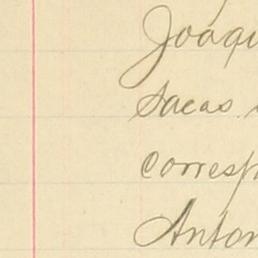 Joaqu
sacas
corresp
Anton